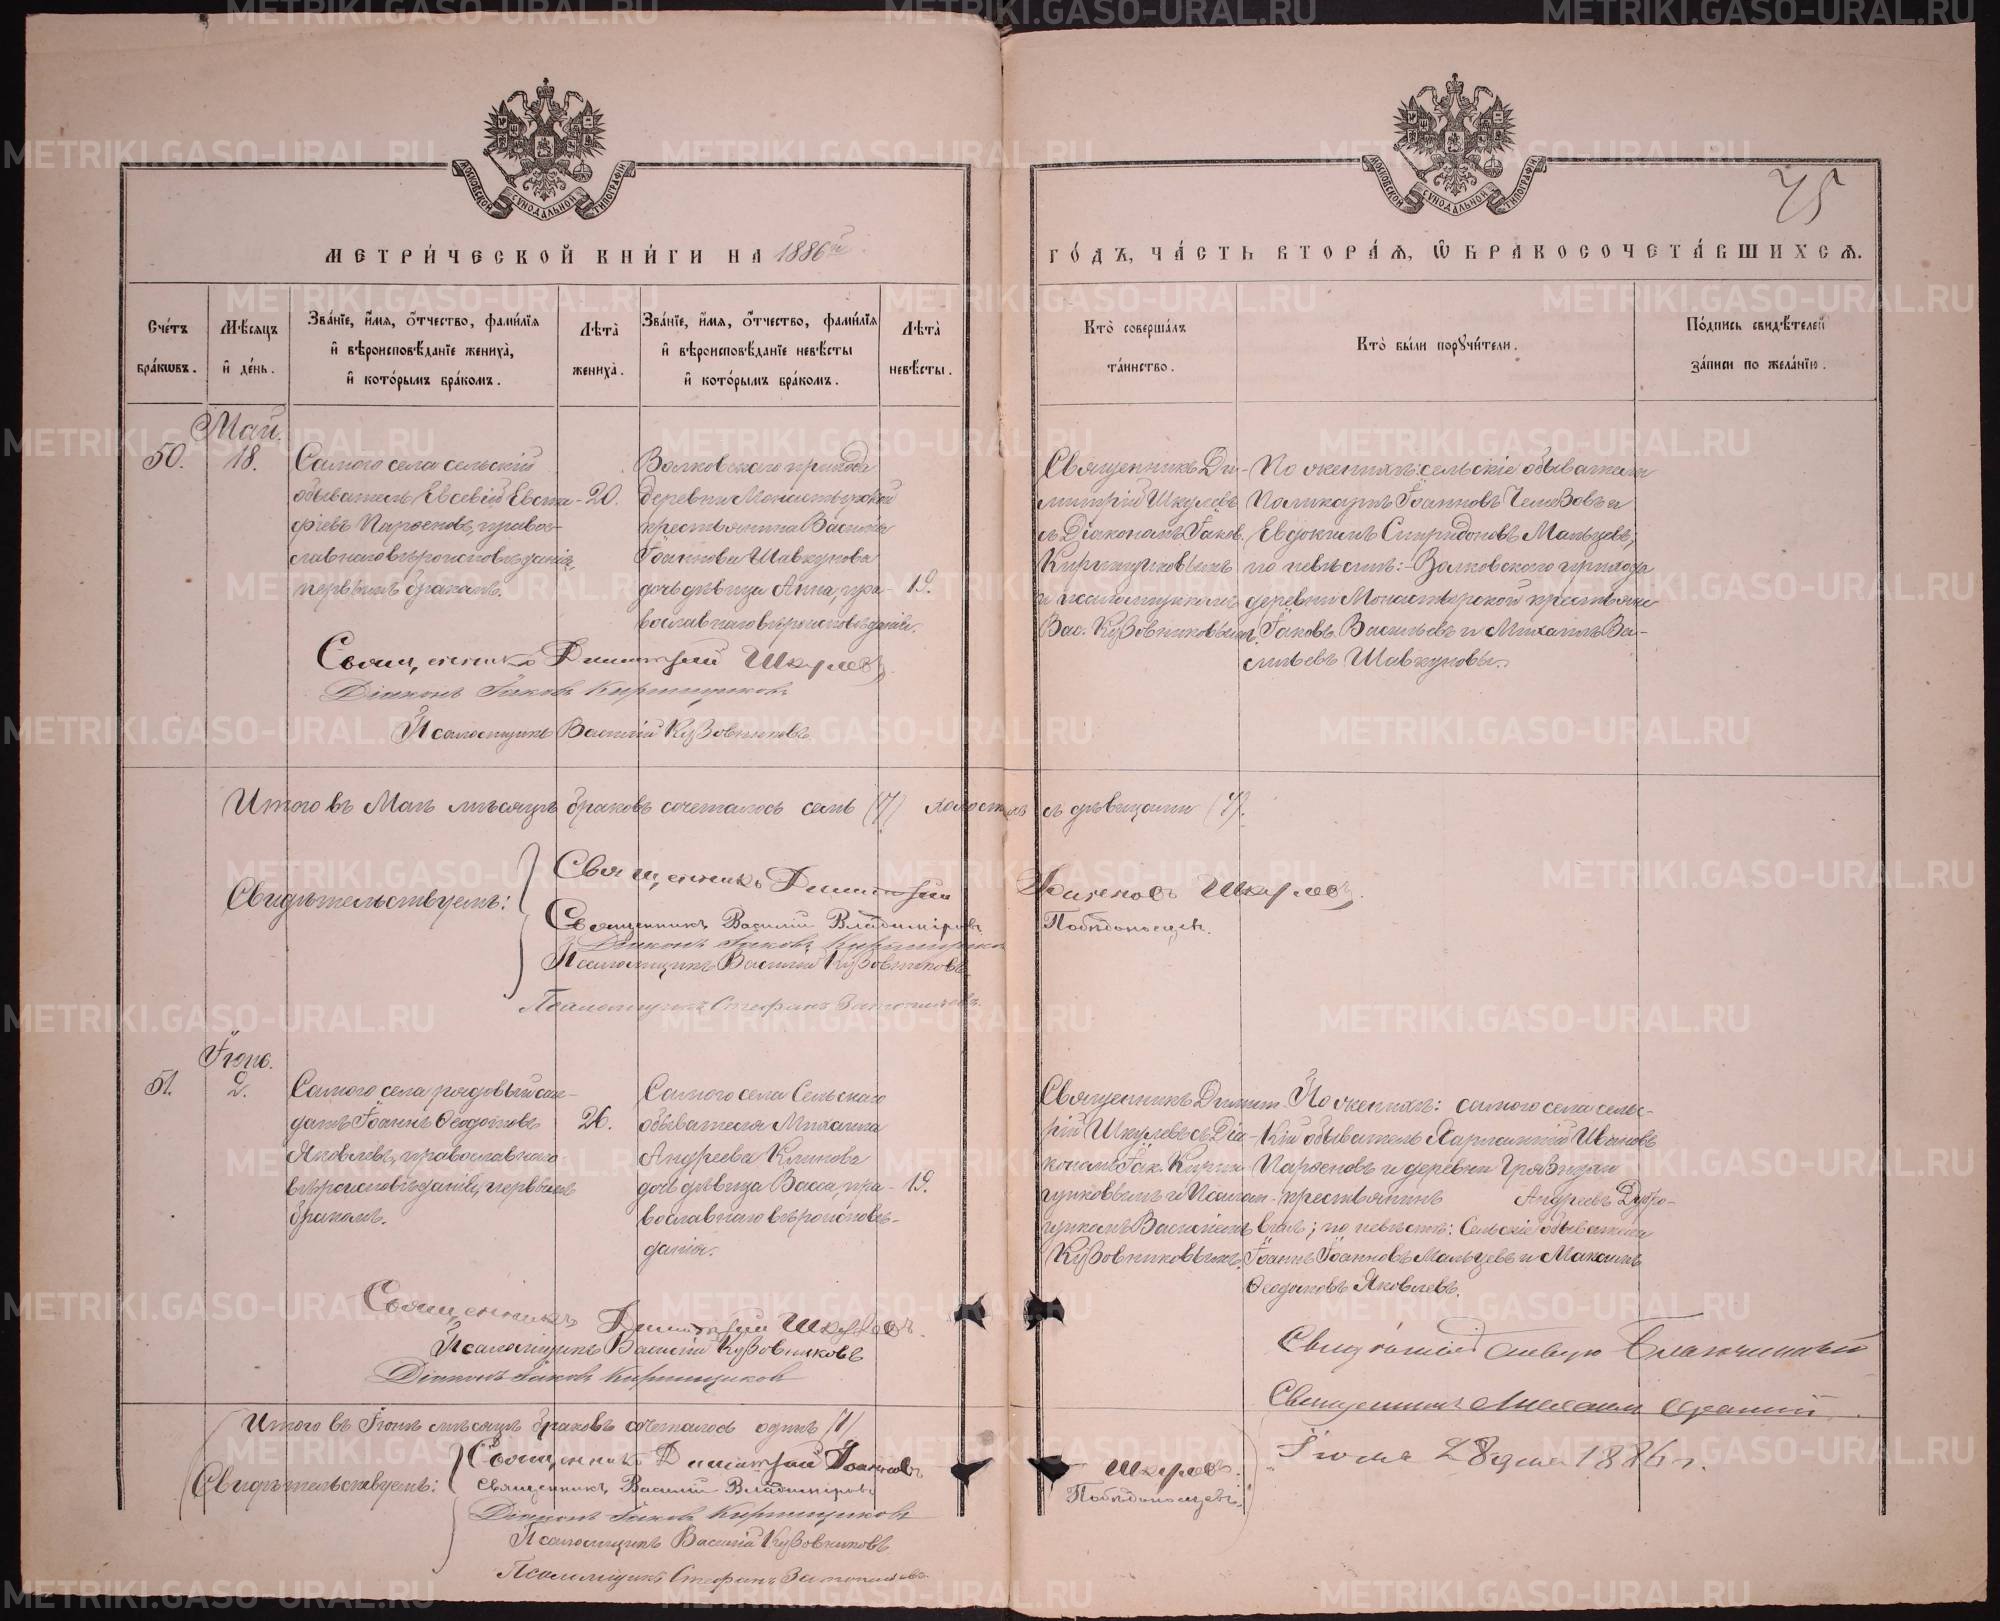 75
МЕТРИ́ЧЕСКОЙ КНИ́ГИ НА 1886й
ГО́ДЪ, ЧА́СТЬ ВТОРА́Я, Ѡ БРАКОСОЧЕТА́ВШИХСЯ.
МОСКОВСКОЙ СѴНОДАЛЬНОЙ ТИПОГРАФІИ
МОСКОВСКОЙ СѴНОДАЛЬНОЙ ТИПОГРАФІИ
Сче́тъ бра́кѡвъ.
Мѣ́сяцъ и҆ де́нь.
Зва́нїе, и҆́мя, ѻ҆́тчество, фами́лїя
и҆ вѣроисповѣ́данїе жениха̀,
и҆ кото́рымъ бра́комъ.
Лѣ́та̀ жениха̀.
Зва́нїе, и҆́мя, ѻ҆́тчество, фами́лїя
и҆ вѣроисповѣ́данїе невѣ́сты
и҆ кото́рымъ бра́комъ.
Лѣ́та̀ невѣ́сты.
Кто̀ соверша́лъ
та́инство.
Кто̀ бы́ли порꙋчи́тели.
По́дпись свидѣ́телей
за́писи по жела́нїю.
Май.
50.
18.
Самого села сельскій
обыватель Евсевій Евста-
фіевъ Парѳеновъ, право-
славнаго вѣроисповѣданія,
первымъ бракомъ.
20.
Волковскаго прихода
деревни Монастырской
крестьянина Василія
Іоаннова Шавкунова
дочь дѣвица Анна, пра-
вославнаго вѣроисповѣданія.
19.
Священникъ Ди-
митрій Шкулевъ
съ Діакономъ Іаков.
Кирпищиковымъ
и псаломщикомъ
Вас. Кузовниковымъ.
По женихѣ: сельскіе обыватели
Поликарпъ Іоанновъ и
Евдокимъ Спиридоновъ Мальцевъ;
по невѣстѣ:- Волковскаго прихода
деревни Монастырской крестьяне
Іаковъ Васильевъ и Михаилъ Ва-
сильевъ Шавкуновы.
Священникъ Димитрій Шкулевъ
Діаконъ Іаковъ Кирпищиковъ
Псаломщикъ Василій Кузовниковъ
Итого въ Маѣ мѣсяцѣ браковъ сочеталось семь (7) холостыхъ съ дѣвицами (7).
Свидѣтельствуемъ:
Священникъ Димитрій Іоанновъ Шкулевъ.
Священникъ Василій Владиміровъ Побѣдоносцевъ.
Діаконъ Іаковъ Кирпищиковъ
Псаломщикъ Василій Кузовниковъ
Псаломщикъ Стефанъ
Іюнь.
51.
2.
Самого села рядовый сол-
датъ Іоаннъ Ѳеодотовъ
Яковлевъ, православнаго
вѣроисповѣданія, первымъ
бракомъ.
26.
Самого села Сельскаго
обывателя Михаила
Андреева Климова
дочь дѣвица Васса, пра-
вославнаго вѣроисповѣ-
данія.
19.
Священникъ Димит-
рій Шкулевъ съ Діа-
кономъ Іак. Кирпи-
щиковымъ и Псалом-
щикомъ Василіемъ
Кузовниковымъ.
По женихѣ: самого села сельс-
кій обыватель Харлампій Ивановъ
Парѳеновъ и деревни
крестьянинъ Андреевъ
по невѣстѣ: Сельскіе обыватели
Іоаннъ Іоанновъ Мальцевъ и Максимъ
Ѳеодотовъ Яковлевъ.
Священникъ Димитрій Шкулевъ.
Псаломщикъ Василій Кузовниковъ
Діаконъ Іаковъ Кирпищиковъ
Благочинный
Священникъ
Іюля 28 дня 1886 г.
Итого въ Іюнѣ мѣсяцѣ браковъ сочеталось одинъ (1)
Свидѣтельствуемъ:
Священникъ Димитрій Іоанновъ Шкулевъ.
Священникъ Василій Владиміровъ Побѣдоносцевъ.
Діаконъ Іаковъ Кирпищиковъ
Псаломщикъ Василій Кузовниковъ
Псаломщикъ Стефанъ
METRIKI.GASO-URAL.RU